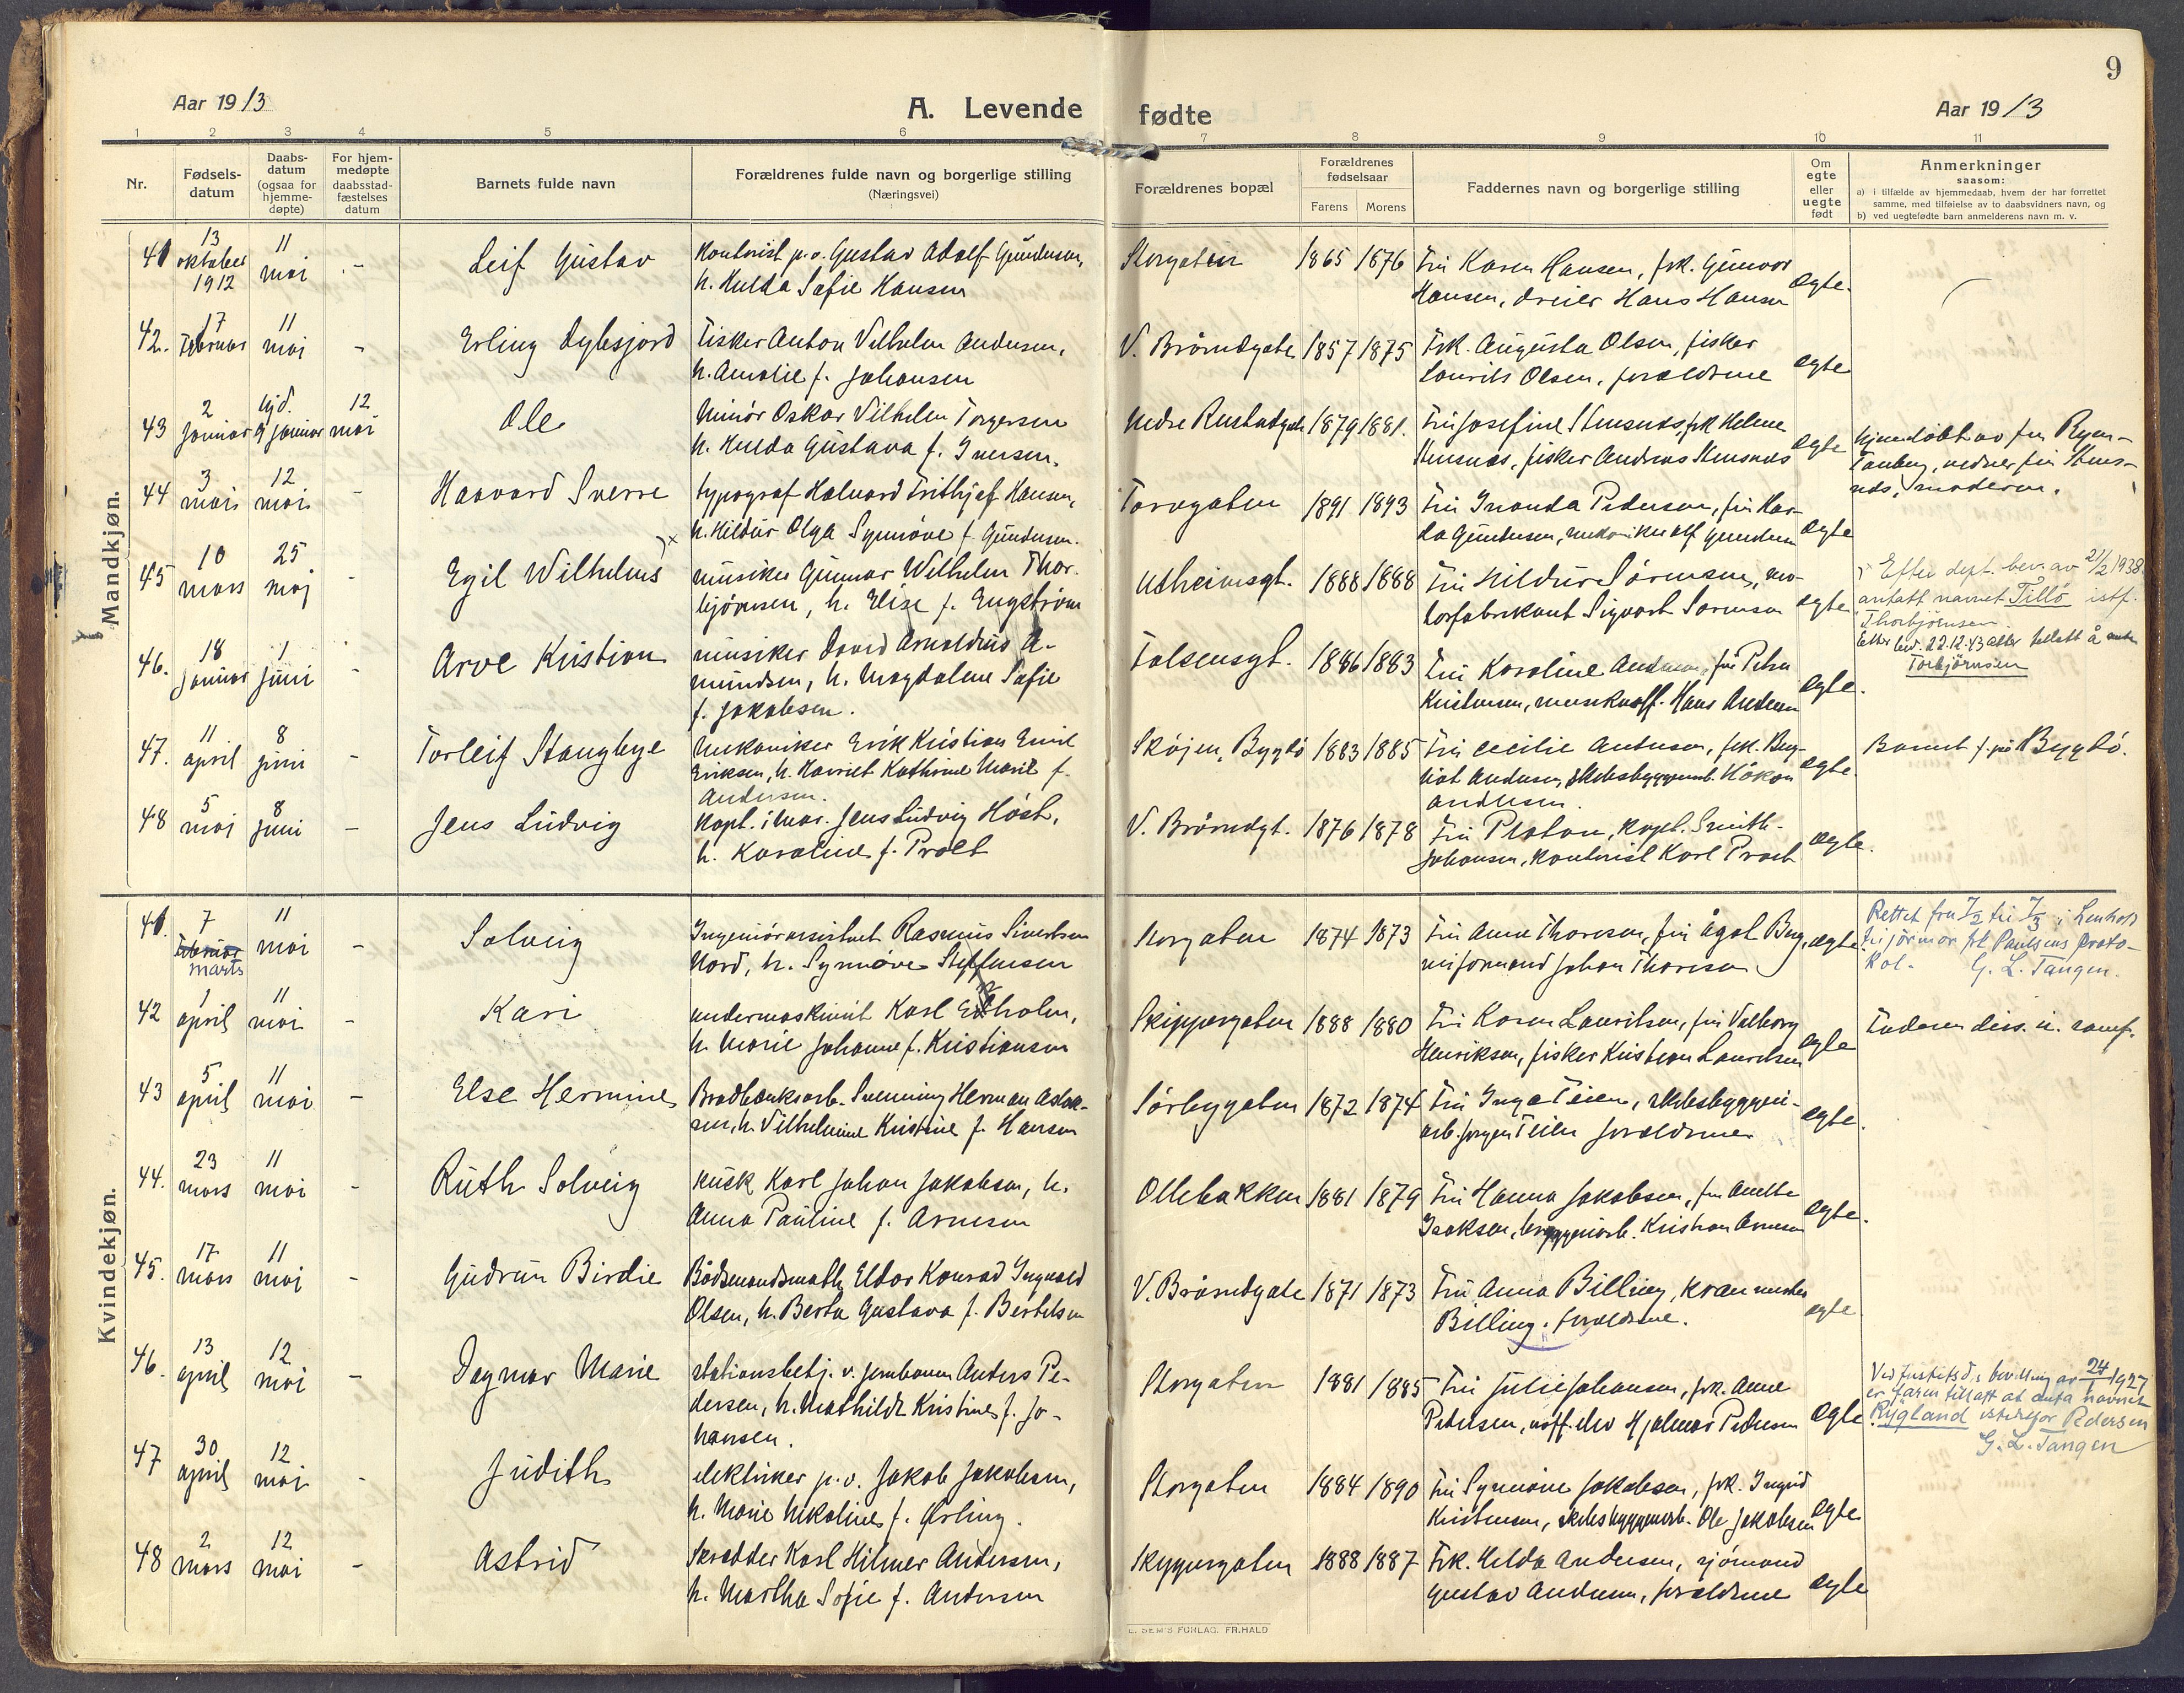 9
Aar 1913
A. Levende fødte
Aar 1913
1 2 3 4 5 6 7 8 9 10 11
Nr.
Fødsels-
datum
Daabs-
datum
(ogsaa for
hjemme-
døpte)
For hjem-
medøpte
daabsstad-
fæstelses
datum
Barnets fulde navn
Forældrenes fulde navn og borgerlige stilling
(Næringsvei)
Forældrenes bopæl
Forældrenes
fødselsaar
Farens Morens
Faddernes navn og borgerlige stilling
Om
egte
eller
uegte
født
Anmerkninger
saasom:
a) i tilfælde av hjemmedaab, hvem der har forrettet
samme, med tilføielse av to daabsvidners navn, og
b) ved uegtefødte barn anmelderens navn m. v.
Mandkjøn.
41 13 oktober 1912 11 mai - Leif Gustav
Kontorist p.v. Gustav Adolf Gundersen,
h. Hulda Sofie Hansen
Storgaten 1865 1876
Fru Karen Hansen, frk. Gunvor
Hansen, dreier Hans Hansen
egte.
42. 17 februar 11 mai - Erling Dybesjord
Fisker Anton Vilhelm Andersen,
h. Amalie f. Johansen
V. Brårudgate 1857 1875
Frk. Augusta Olsen, fisker
Laurits Olsen, forældrene
egte
43 2 januar hjd. 9 januar 12 mai Ole
Minør Oskar Vilhelm Torgersen
h. Hulda Gustava f. Iversen.
Nedre Rustadgate 1879 1881.
Fru Josefine Stensnæs, frk Helene
Stensnæs, fisker Andreas Stensnæs
egte
hjemdøbt av fru Ryen-
Tanberg, vidner fru Stens-
næs, moderen.
44 3 mars 12 mai - Haavard Sverre
typograf Halvard Frithjof Hansen,
h. Hildur Olga Synnøve f. Gundersen.
Torvgaten 1891 1893
Fru Inanda Pedersen, fru Har-
da Gundersen, mekaniker Alf Gundersen
egte
45 10 mars 25 mai - Egil Wilhelms x
musiker Gunnar Wilhelm Thor-
bjørnsen, h. Elise f. Engström
Utheimsgt. 1888 1888
Fru Hildur Sørensen, mo-
torfabrikant Sigvart Sørensen
egte
Efter dept. bev. av 21/2 1938
antatt navnet Tillö istf.
Thorbjörnsen.
Etter bev. 22.12.43 atter tillatt å anta
Torbjørnsen
46. 18 januar 1 juni - Arve Kristian
musiker David Arnoldus A-
mundsen, h. Magdalene Sofie
f. Jakobsen.
Tolfsensgt. 1886 1883
Fru Karoline Andersen, fru Petra
Kristensen, Hans Andersen
egte.
47. 11 april 8 juni - Torleif Stangbye
Mekaniker Erik Kristian Emil
Eriksen, h. Harriet Kathrine Marie f.
Andersen.
Skøjen, Bygdø 1883 1885
Fru Cecilie Andersen, frk. Berg-
liot Andersen, skibsbyggerarb. Håkon
Andersen.
egte.
Barnet f. på Bygdø.
48 5 mai 8 juni - Jens Ludvig
Kapt. i mar. Jens Ludvig Høst,
h. Karoline f. Prøet
V. Brårudgt. 1876 1878
Fru Platou, kapt. Smith-
Johansen, kontorist Karl
egte.
Kvindekjøn.
41. 7 februar marts 11 mai - Solveig
Ingeniørassistent Rasmus Sivertsen
Nord, h. Synnøve Steffensen
Storgaten 1874 1873
Fru Anna Thoresen, fru Ågot Berg,
Johan Thoresen
egte.
Rettet fra 7/2 til 7/3 i henhold
til jormor frk Paulsens proto-
kol. G. L. Tangen.
42 1 april 11 mai - Kari
undermaskinist Karl Ekholm,
h. Marie Johanne f. Kristiansen
Skippergaten 1888 1880
Fru Karen Lauritsen, fru Valborg
Henriksen, fisker Kristian Lauritsen
egte
Faderen diss. u. samf.
43 5 april 11 mai - Else Hermine
Brødbankarb. Svenning Herman Aslak-
sen, h. Vilhelmine Kristine f. Hansen
Sørbygaten 1872 1874
Fru Inga Teien, skibsbyggeri-
arb. Jørgen Teien forældrene
egte.
44. 23 mars 11 mai - Ruth Solveig
kusk Karl Johan Jakobsen, h.
Anna Pauline f. Arnesen
Ollebakken 1881 1879
Fru Hanna Jakobsen, fru Anette
Isaksen, bryggeriarb. Kristian Arnesen
egte.
45. 17 mars 11 mai - Gudrun Birdie
Bådsmandsmath Eldor Konrad Ingvald
Olsen, h. Berta Gustava f. Bertelsen
V. Brårudgate 1871 1873
Fru Anna Billing, kranmester
Billing. forældrene.
egte
46. 13 april 12 mai - Dagmar Marie
stationsbetj. v. jernbanen Anders Pe-
dersen, h. Mathilde Kristine f. Jo-
hansen.
Storgaten 1881 1885
Fru Julie Johansen, frk. Anne
Pedersen, uoff. elev Hjalmar Pedersen
egte
Ved Justitsd.s bevilling av 24/1 1927
er faren tillatt at anta navnet
Rygland istedefor Pedersen
G. L. Tangen
47 30 april 12 mai - Judith
elektriker p.v. Jakob Jakobsen,
h. Marie Nikoline f. Ørling.
Storgaten 1884 1890
Fru Synnøve Jakobsen, frk. Ingrid
Kristensen, skibsbyggerarb. Ole Jakobsen
egte
48 2 mars 12 mai - Astrid
Skrædder Karl Hilmer Andersen,
h. Martha Sofie f. Andersen
Skippergaten 1888 1887
Frk. Helda Andersen, sjømand
Gustav Andersen, forældrene
egte
E. SEM'S FORLAG. FR.HALD